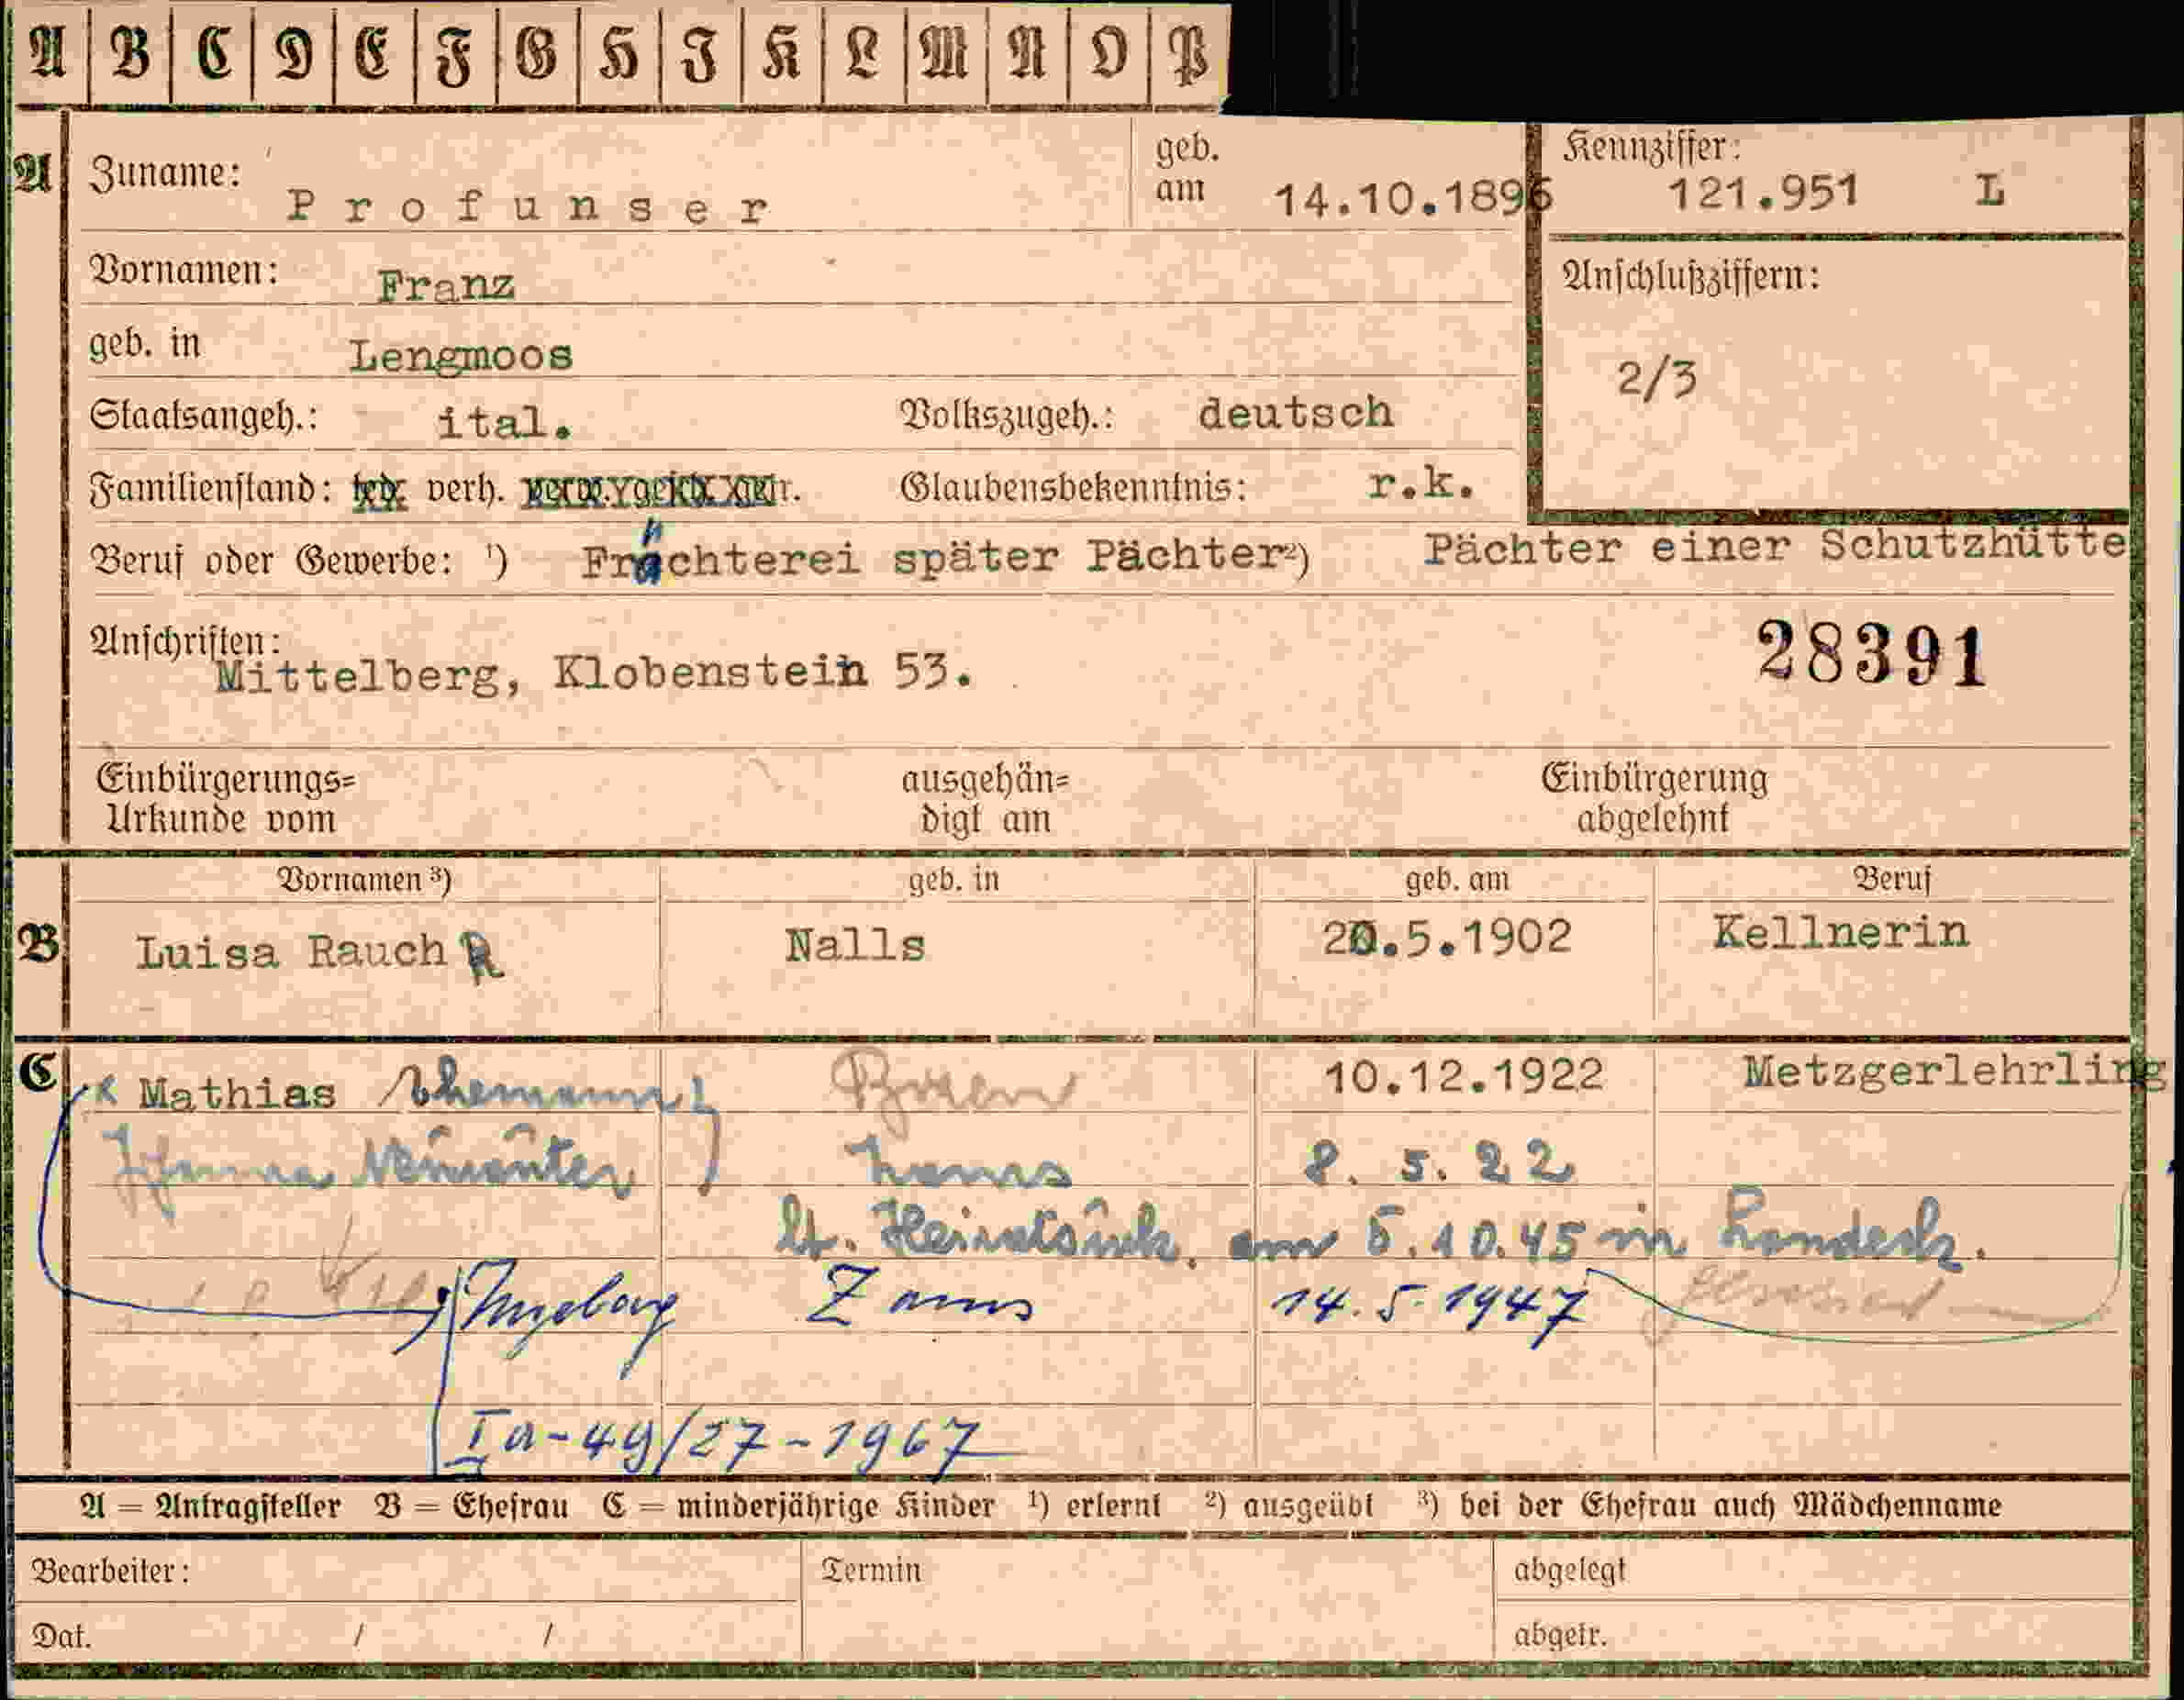 A B C D E F G H J K L M N O P
A Zuname: Profunser geb. am 14.10.1896 Kennziffer: 121.951 L
Vornamen: Franz
Anschlußziffern: 2/3
geb. in Lengmoos
Staatsangeh.: ital. Volkszugeh.: deutsch
Familienstand: verh. Glaubensbekenntnis: r.k.
Beruf oder Gewerbe: ¹) Frächterei später Pächter ²) Pächter einer Schutzhütte
Anschriften: 28391
Mittelberg, Klobenstein 53.
Einbürgerungs= ausgehän= Einbürgerung
Urkunde vom digt am abgelehnt
Vornamen ³) geb. in geb. am Beruf
B Luisa Rauch Nalls 20.5.1902 Kellnerin
C Mathias Ehemann Bozen 10.12.1922 Metzgerlehrling
Johanna Zams 8. 5. 22
lt. Heiratsurk. am 5.10.45 in Landeck.
Ingeborg Zams 14.5.1947
Ia-49/27-1967
A = Antragsteller B = Ehefrau C = minderjährige Kinder ¹) erlernt ²) ausgeübt ³) bei der Ehefrau auch Mädchenname
Bearbeiter: Termin abgelegt
Dat. / / abgetr.